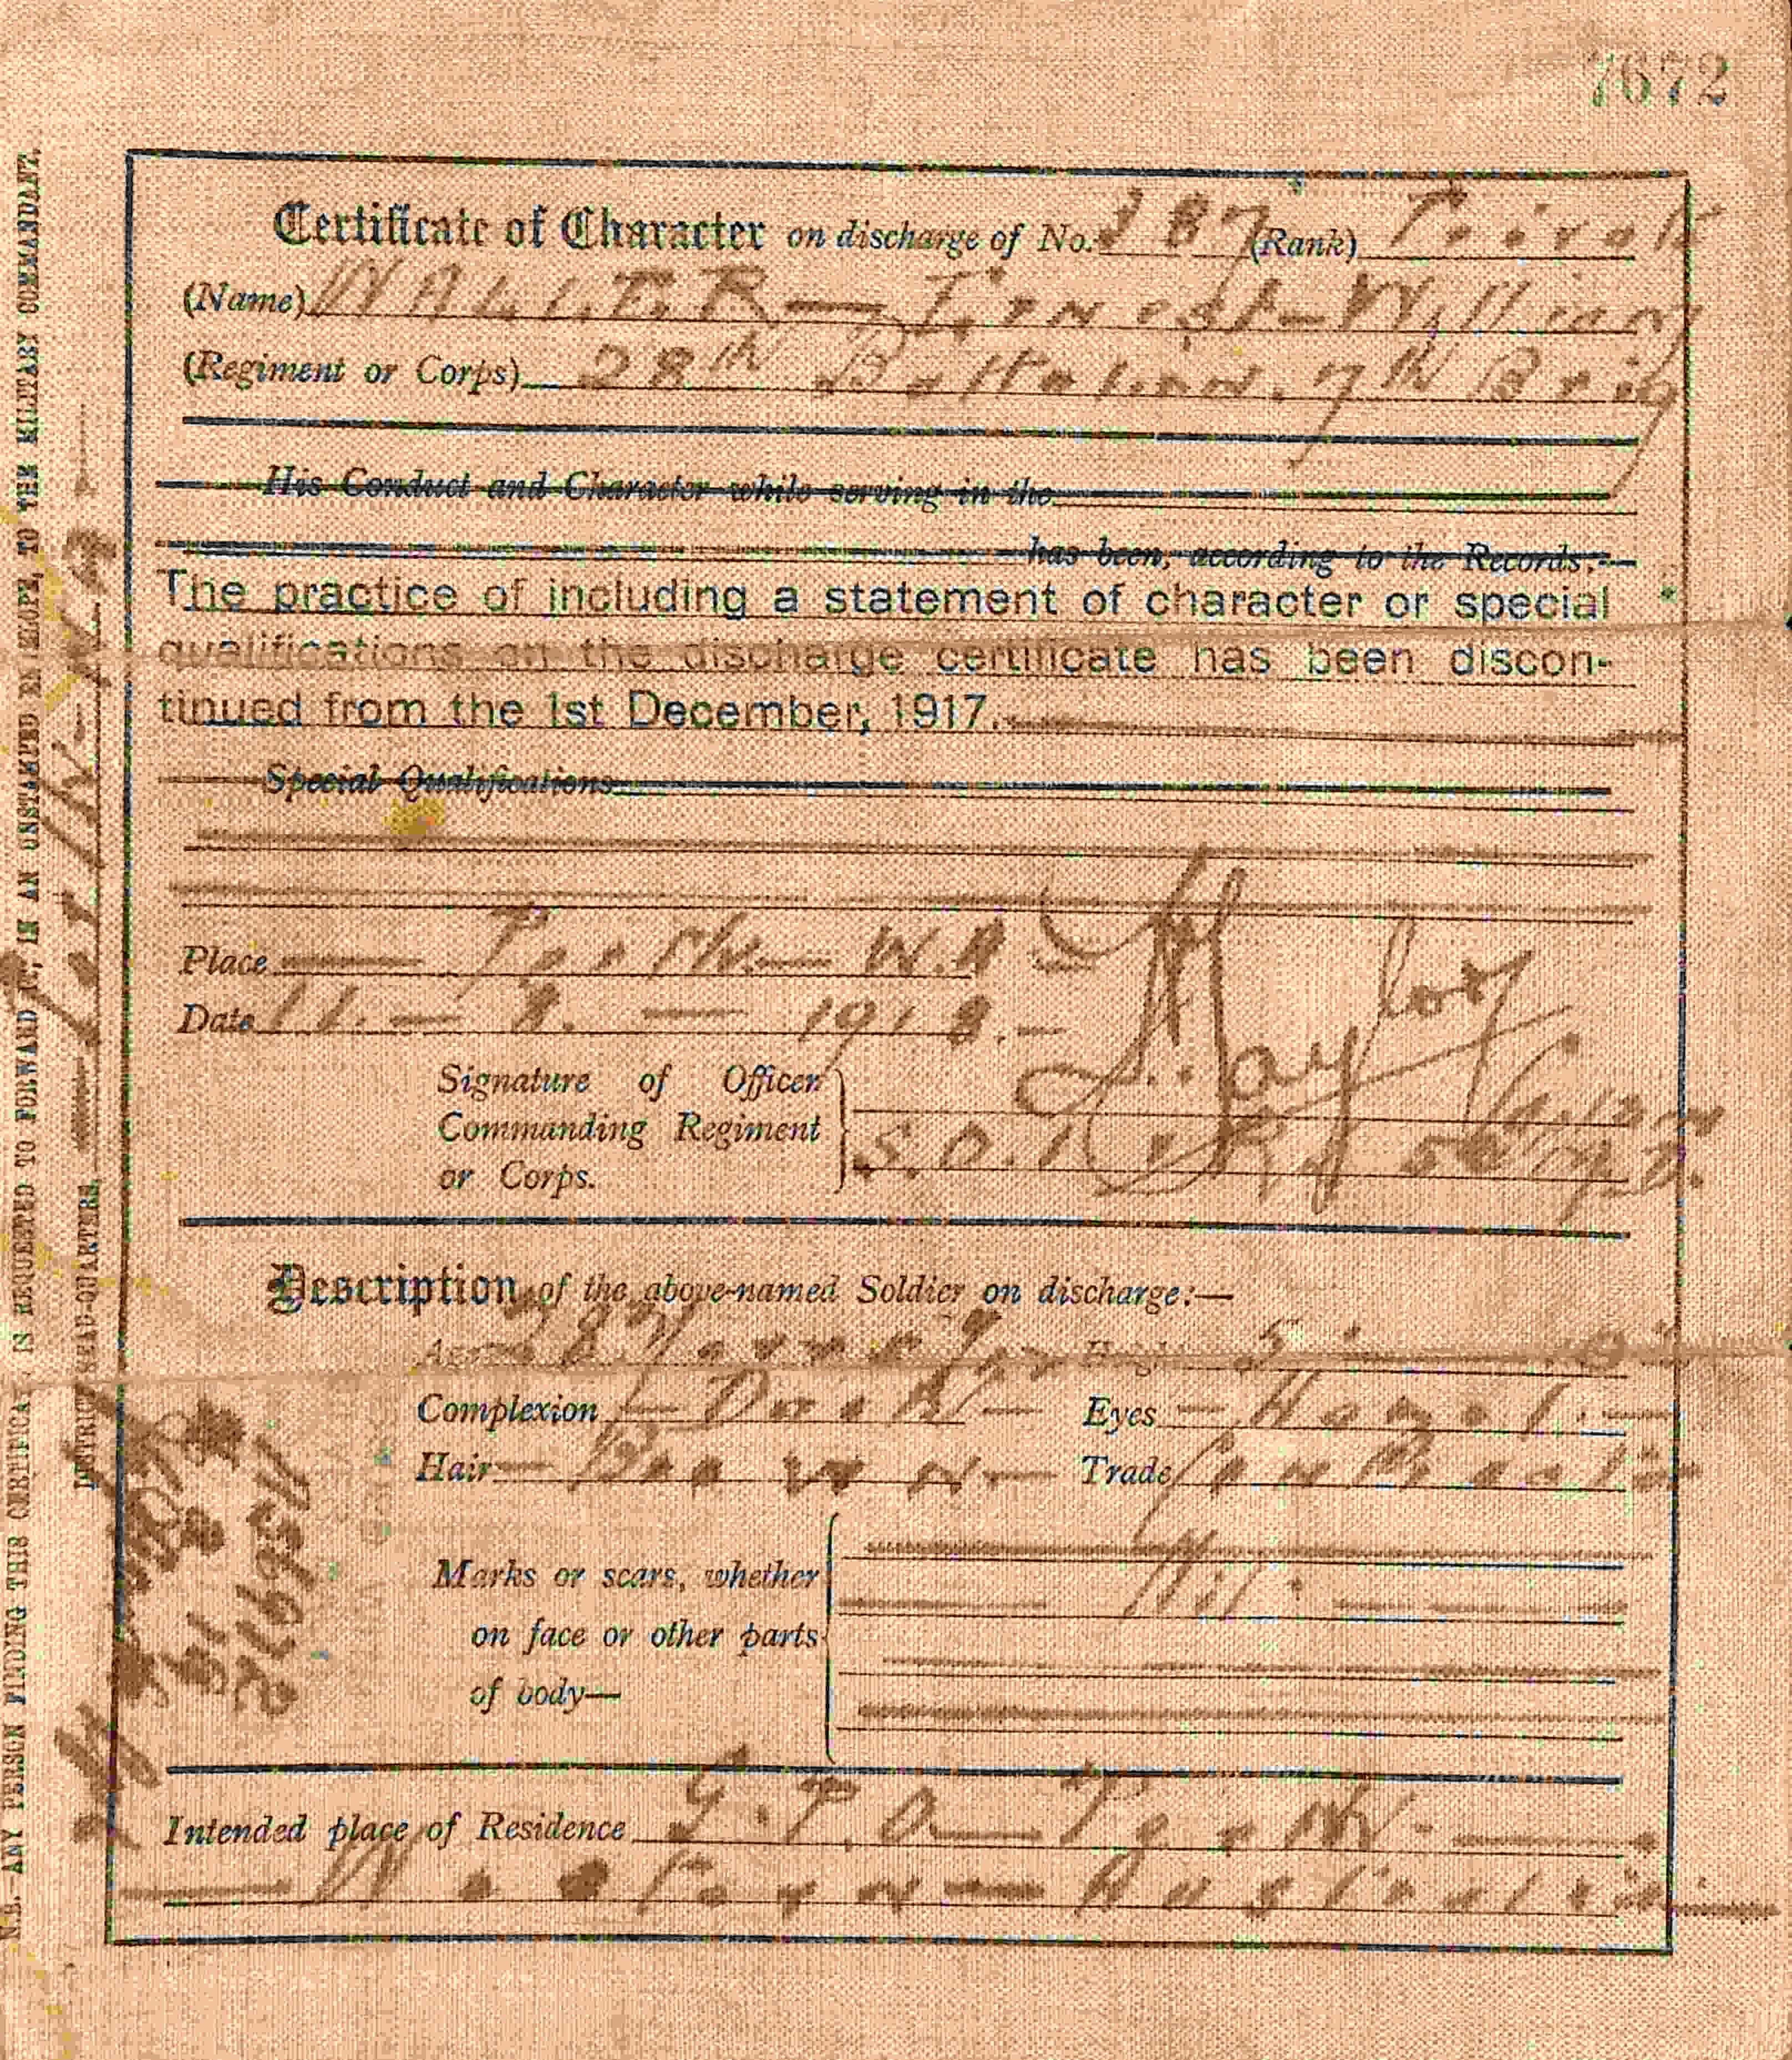 7672
Certificate of Character on discharge of No. 387 (Rank) Private
(Name) WALLER — Ernest – William
(Regiment or Corps) 28th Battalion. 7th Brig
His Conduct and Character while serving in the
has been, according to the Records:—
The practice of including a statement of character or special
qualifications on the discharge certificate has been discon-
tinued from the 1st December, 1917.
Special Qualifications
Place — Perth. — W.A —
Date 11. — — 1918. —
Signature of Officer
Commanding Regiment
or Corps.
Taylor Capt
S.O.I. & R.
Description of the above-named Soldier on discharge:—
Age 28 Years Height 5
Complexion — Dark — Eyes — Hazel. —
Hair — Brown — Trade
Marks or scars, whether
on face or other parts
of body—
Nil.
Intended place of Residence G.P.O — Perth. —
— Western — Australia
N.B. ANY PERSON FINDING THIS CERTIFICATE IS REQUESTED TO FORWARD IT, IN AN UNSTAMPED ENVELOPE, TO THE MILITARY COMMANDANT.
DISTRICT HEAD-QUARTERS, — Perth – W.A —